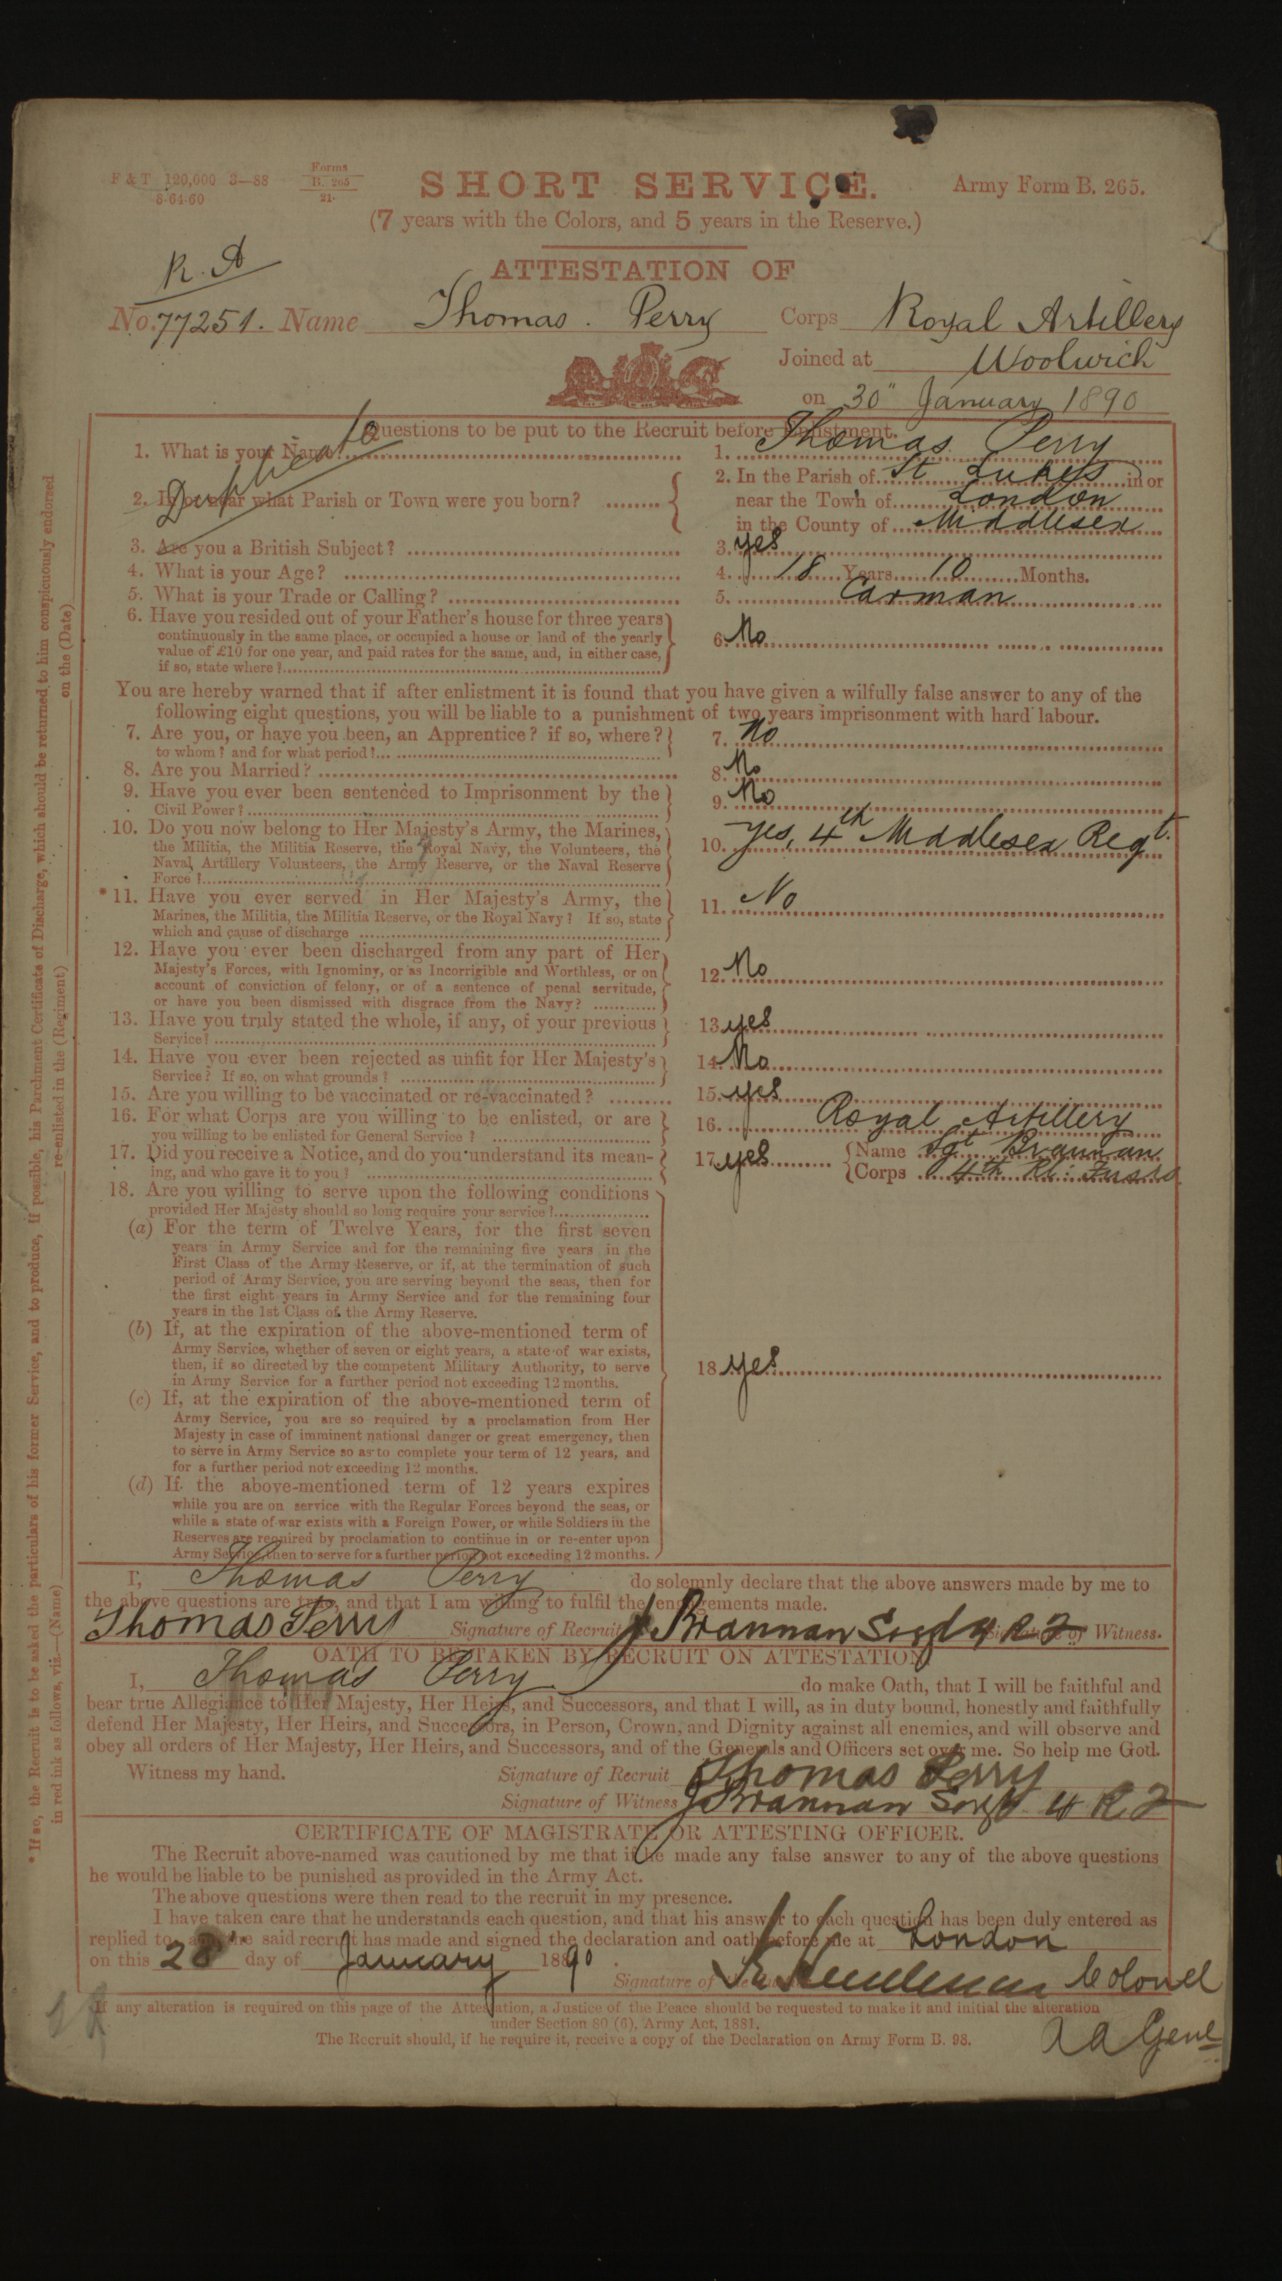 F & T 120,000 3—88
8·64·60
Forms
B. 265
21·
SHORT SERVICE.
Army Form B. 265.
(7 years with the Colors, and 5 years in the Reserve.)
ATTESTATION OF
R. A
No. 77251. Name Thomas. Perry Corps Royal Artillery
Joined at Woolwich
on 30" January 1890
Duplicate
Questions to be put to the Recruit before Enlistment.
1. What is your Name? 1. Thomas Perry
2. In or near what Parish or Town were you born? 2. In the Parish of St Lukes in or
near the Town of London
in the County of Middlesex
3. Are you a British Subject? 3. yes
4. What is your Age? 4. 18 Years 10 Months.
5. What is your Trade or Calling? 5. Carman
6. Have you resided out of your Father's house for three years
continuously in the same place, or occupied a house or land of the yearly
value of £10 for one year, and paid rates for the same, and, in either case,
if so, state where? 6. No
You are hereby warned that if after enlistment it is found that you have given a wilfully false answer to any of the
following eight questions, you will be liable to a punishment of two years imprisonment with hard labour.
7. Are you, or have you been, an Apprentice? if so, where?
to whom? and for what period? 7. No
8. Are you Married? 8. No
9. Have you ever been sentenced to Imprisonment by the
Civil Power? 9. No
10. Do you now belong to Her Majesty's Army, the Marines,
the Militia, the Militia Reserve, the Royal Navy, the Volunteers, the
Naval Artillery Volunteers, the Army Reserve, or the Naval Reserve
Force? 10. Yes, 4th Middlesex Regt.
* 11. Have you ever served in Her Majesty's Army, the
Marines, the Militia, the Militia Reserve, or the Royal Navy? If so, state
which and cause of discharge 11. No
12. Have you ever been discharged from any part of Her
Majesty's Forces, with Ignominy, or as Incorrigible and Worthless, or on
account of conviction of felony, or of a sentence of penal servitude,
or have you been dismissed with disgrace from the Navy? 12. No
13. Have you truly stated the whole, if any, of your previous
Service? 13. yes
14. Have you ever been rejected as unfit for Her Majesty's
Service? If so, on what grounds? 14. No
15. Are you willing to be vaccinated or re-vaccinated? 15. yes
16. For what Corps are you willing to be enlisted, or are
you willing to be enlisted for General Service? 16. Royal Artillery
17. Did you receive a Notice, and do you understand its mean-
ing, and who gave it to you? 17. yes Name Sgt Brannan
Corps 4th Rl: Fusrs
18. Are you willing to serve upon the following conditions
provided Her Majesty should so long require your service?
(a) For the term of Twelve Years, for the first seven
years in Army Service and for the remaining five years in the
First Class of the Army Reserve, or if, at the termination of such
period of Army Service, you are serving beyond the seas, then for
the first eight years in Army Service and for the remaining four
years in the 1st Class of the Army Reserve.
(b) If, at the expiration of the above-mentioned term of
Army Service, whether of seven or eight years, a state of war exists,
then, if so directed by the competent Military Authority, to serve
in Army Service for a further period not exceeding 12 months.
18. yes
(c) If, at the expiration of the above-mentioned term of
Army Service, you are so required by a proclamation from Her
Majesty in case of imminent national danger or great emergency, then
to serve in Army Service so as to complete your term of 12 years, and
for a further period not exceeding 12 months.
(d) If the above-mentioned term of 12 years expires
while you are on service with the Regular Forces beyond the seas, or
while a state of war exists with a Foreign Power, or while Soldiers in the
Reserves are required by proclamation to continue in or re-enter upon
Army Service, then to serve for a further period not exceeding 12 months.
I, Thomas Perry do solemnly declare that the above answers made by me to
the above questions are true, and that I am willing to fulfil the engagements made.
Thomas Perry Signature of Recruit J Brannan Sergt 4 R F Signature of Witness.
OATH TO BE TAKEN BY RECRUIT ON ATTESTATION
I, Thomas Perry do make Oath, that I will be faithful and
bear true Allegiance to Her Majesty, Her Heirs, and Successors, and that I will, as in duty bound, honestly and faithfully
defend Her Majesty, Her Heirs, and Successors, in Person, Crown, and Dignity against all enemies, and will observe and
obey all orders of Her Majesty, Her Heirs, and Successors, and of the Generals and Officers set over me. So help me God.
Witness my hand. Signature of Recruit Thomas Perry
Signature of Witness J Brannan Sergt 4 R F
CERTIFICATE OF MAGISTRATE OR ATTESTING OFFICER.
The Recruit above-named was cautioned by me that if he made any false answer to any of the above questions
he would be liable to be punished as provided in the Army Act.
The above questions were then read to the recruit in my presence.
I have taken care that he understands each question, and that his answer to each question has been duly entered as
replied to, and the said recruit has made and signed the declaration and oath before me at London
on this 28th day of January 1890.
Signature of Colonel
A A Genl
If any alteration is required on this page of the Attestation, a Justice of the Peace should be requested to make it and initial the alteration
under Section 80 (6), Army Act, 1881.
The Recruit should, if he require it, receive a copy of the Declaration on Army Form B. 98.
* If so, the Recruit is to be asked the particulars of his former Service, and to produce, if possible, his Parchment Certificate of Discharge, which should be returned to him conspicuously endorsed
in red ink as follows, viz.—(Name) re-enlisted in the (Regiment) on the (Date)